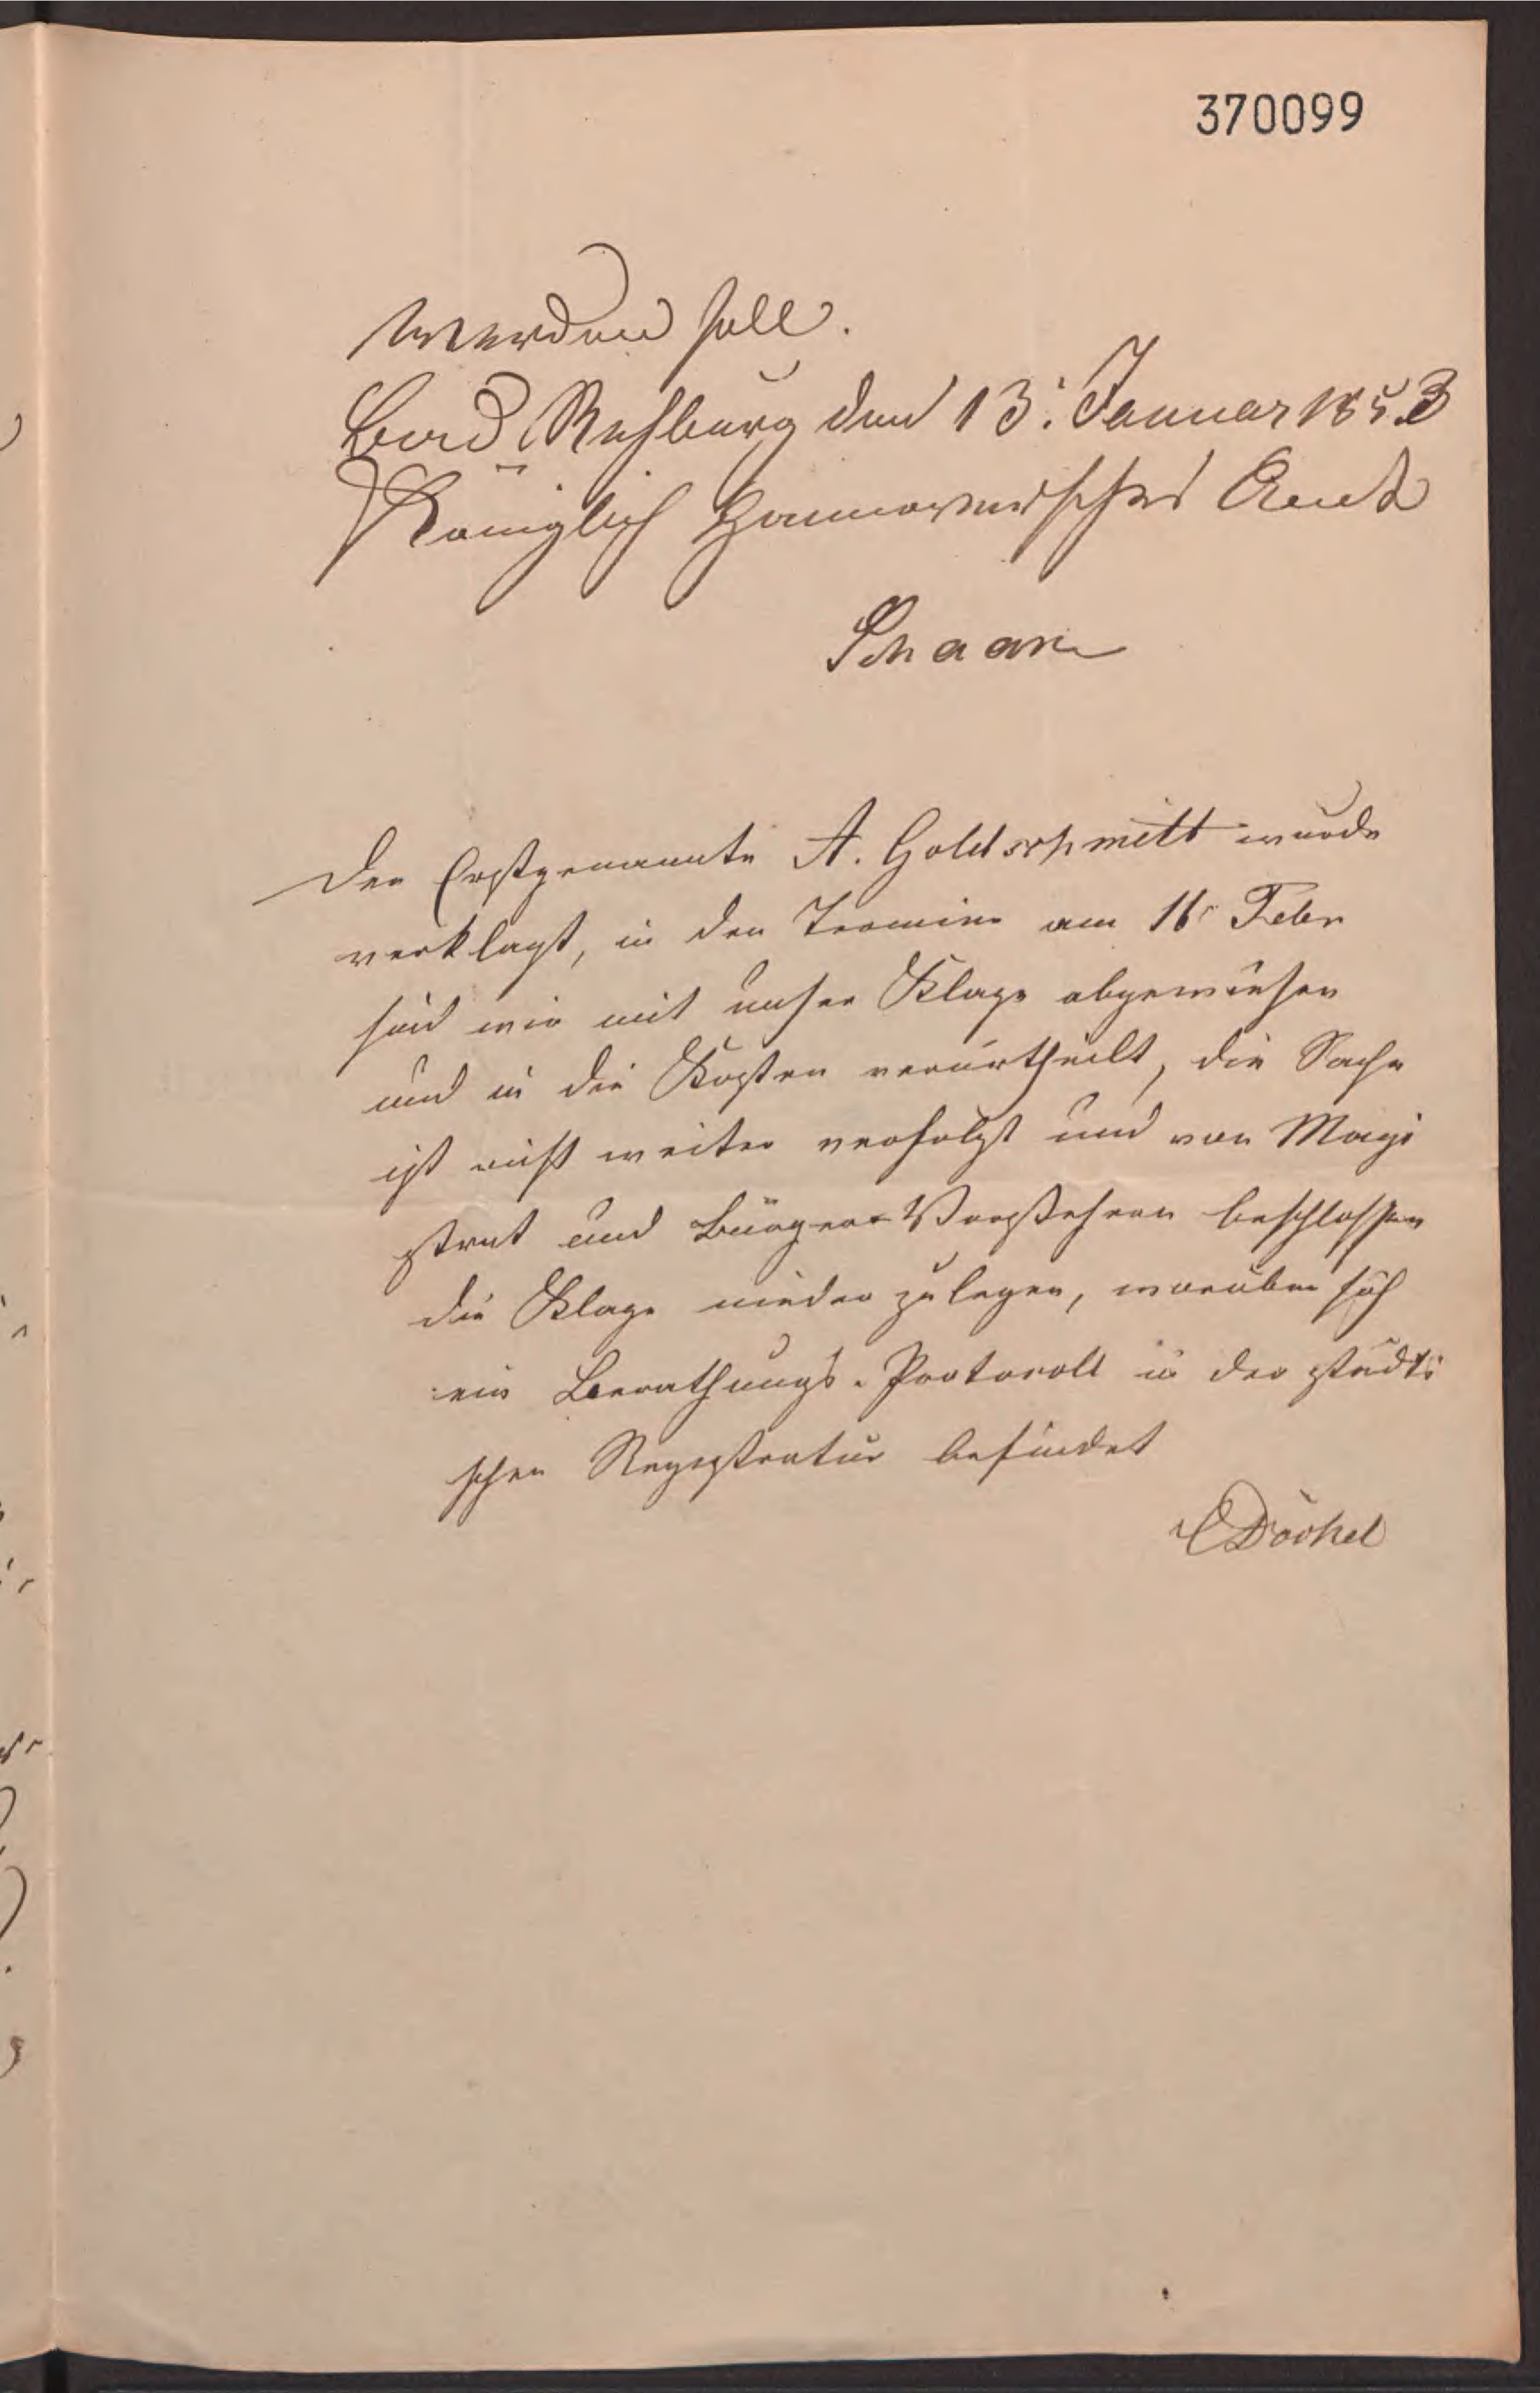 370099
werden soll.
Bad Rehburg den 13. Januar 1853
Königlich Hannoversches Amt
Schaar
Der Erstgenannte A. Goldschmitt wurde
verklagt, in den Termine am 16 Febr
sind wir mit unser Klage abgewiesen
und in die Kosten verurtheilt, die Sache
ist nicht weiter verfolgt und von Magi
strat und Bürger-Vorstehern beschlossen
die Klage nieder zu legen, worüber sich
ein Berathungs-Protocoll in der städti
schen Registratur befindet